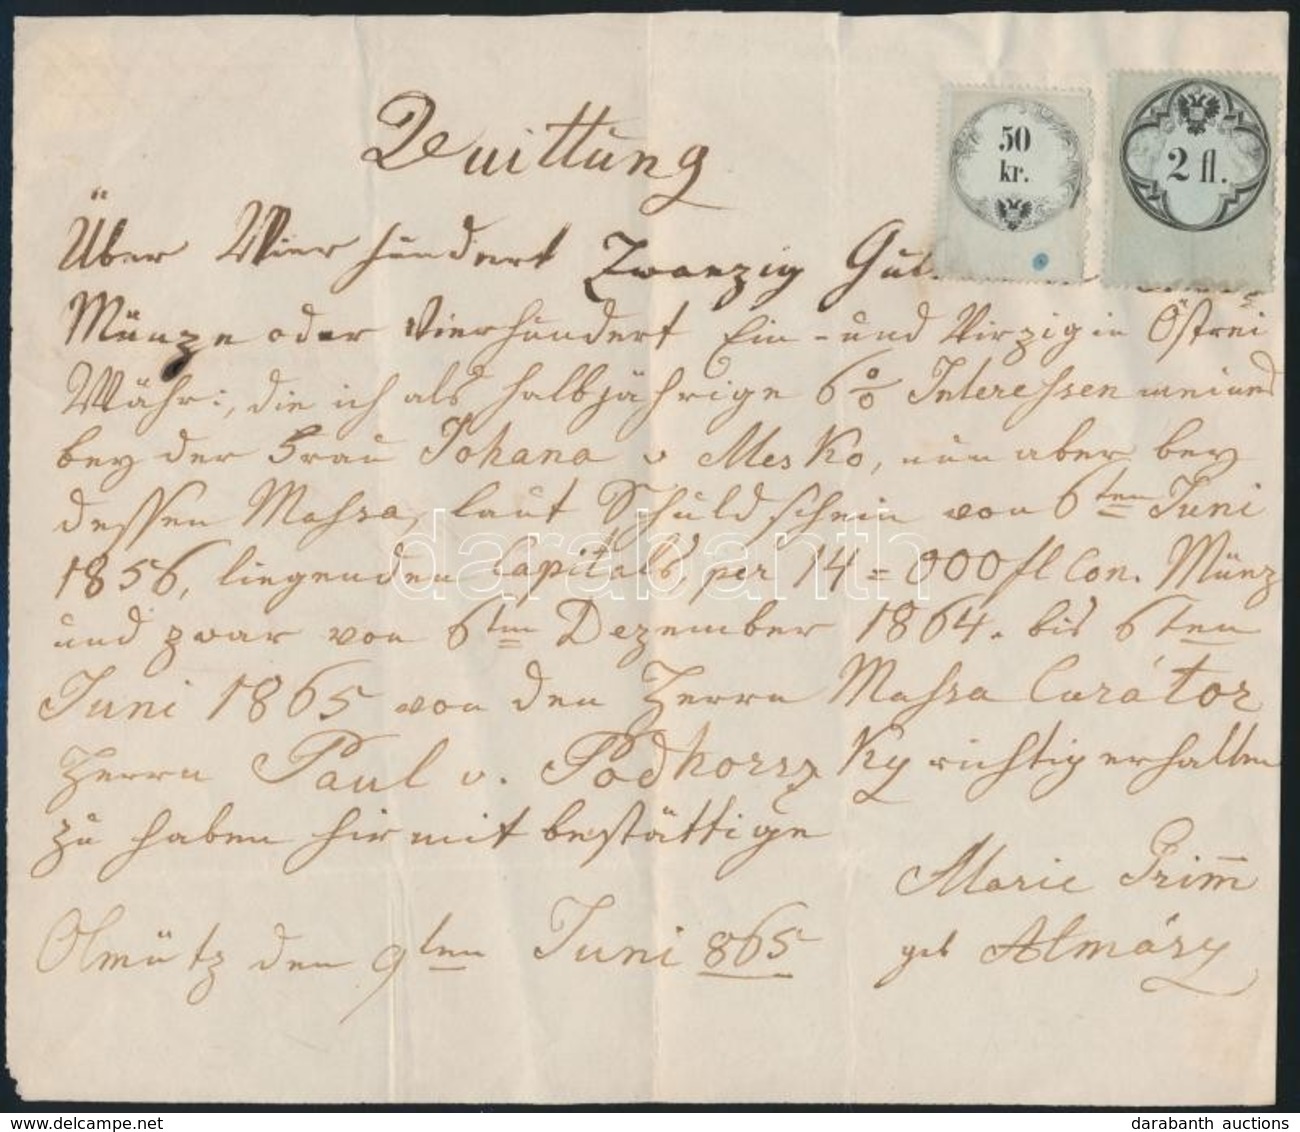 Quittung
50
kr.
2 fl.
Über Vierhundert Zwanzig
Münze oder Vierhundert Ein- und Virzig in Östrei
Währ:, die ich als halbjährige 6% Interessen meines
bey der Frau Johana v Mesko, nun aber bey
dessen Massa, laut Schuldschein von 6ten Juni
1856, liegenden Capitals, per 14=000 fl Con. Münz
und zwar von 6ten Dezember 1864. bis 6ten
Juni 1865 von den Herrn Massa Curátor
Herrn Paul v. Podhorszky richtig erhalten
zu haben hirmit bestättige
Marie Grim̅
Olmütz den 9ten Juni 865
geb Almásy
darabanth
www.delcampe.net
darabanth auctions